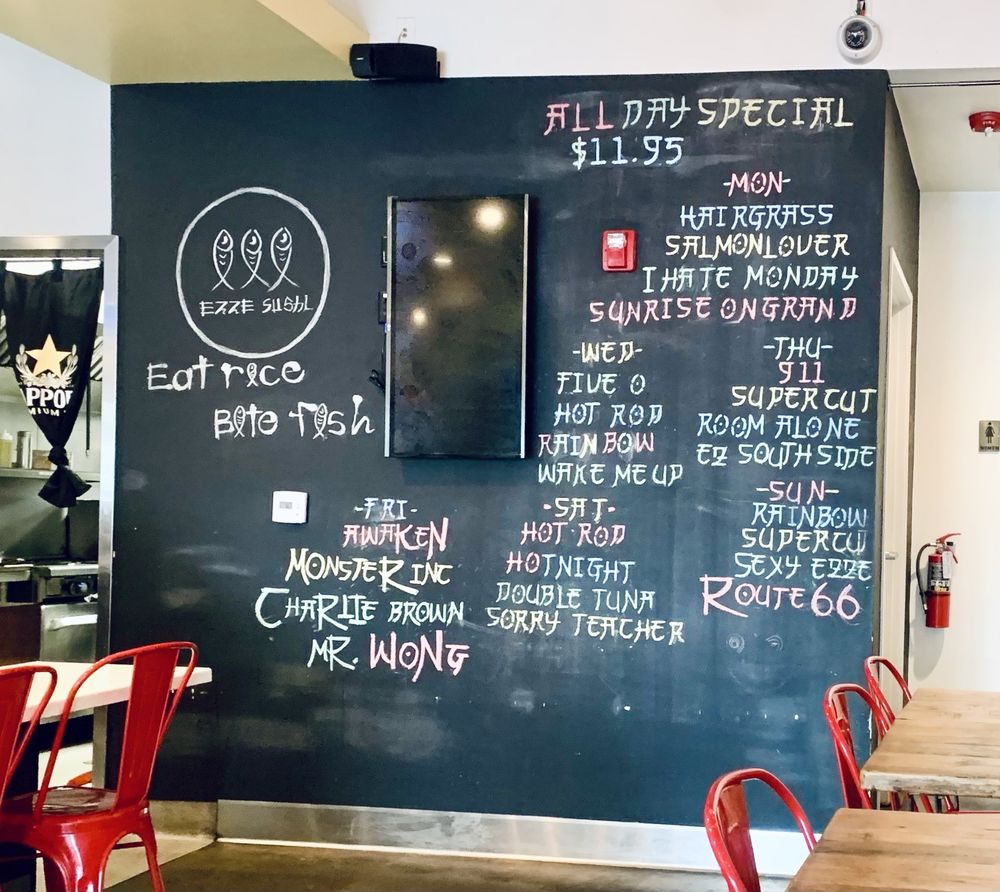 ALL DAY SPECIAL
$11.95
-MON-
HAIRGRASS
SALMONLOVER
I HATE MONDAY
SUNRISE ON GRAND
EZZE SUSHI
Eat rice
Bite fish
-WED-
FIVE O
HOT ROD
RAINBOW
WAKE ME UP
-THU-
911
SUPERCUT
ROOM ALONE
EZ SOUTHSIDE
-FRI-
AWAKEN
MONSTER INC
CHARLIE BROWN
MR. WONG
-SAT-
HOT ROD
HOTNIGHT
DOUBLE TUNA
SORRY TEACHER
-SUN-
RAINBOW
SUPERCU
SEXY EZZE
ROUTE 66
WOMEN
FIRE